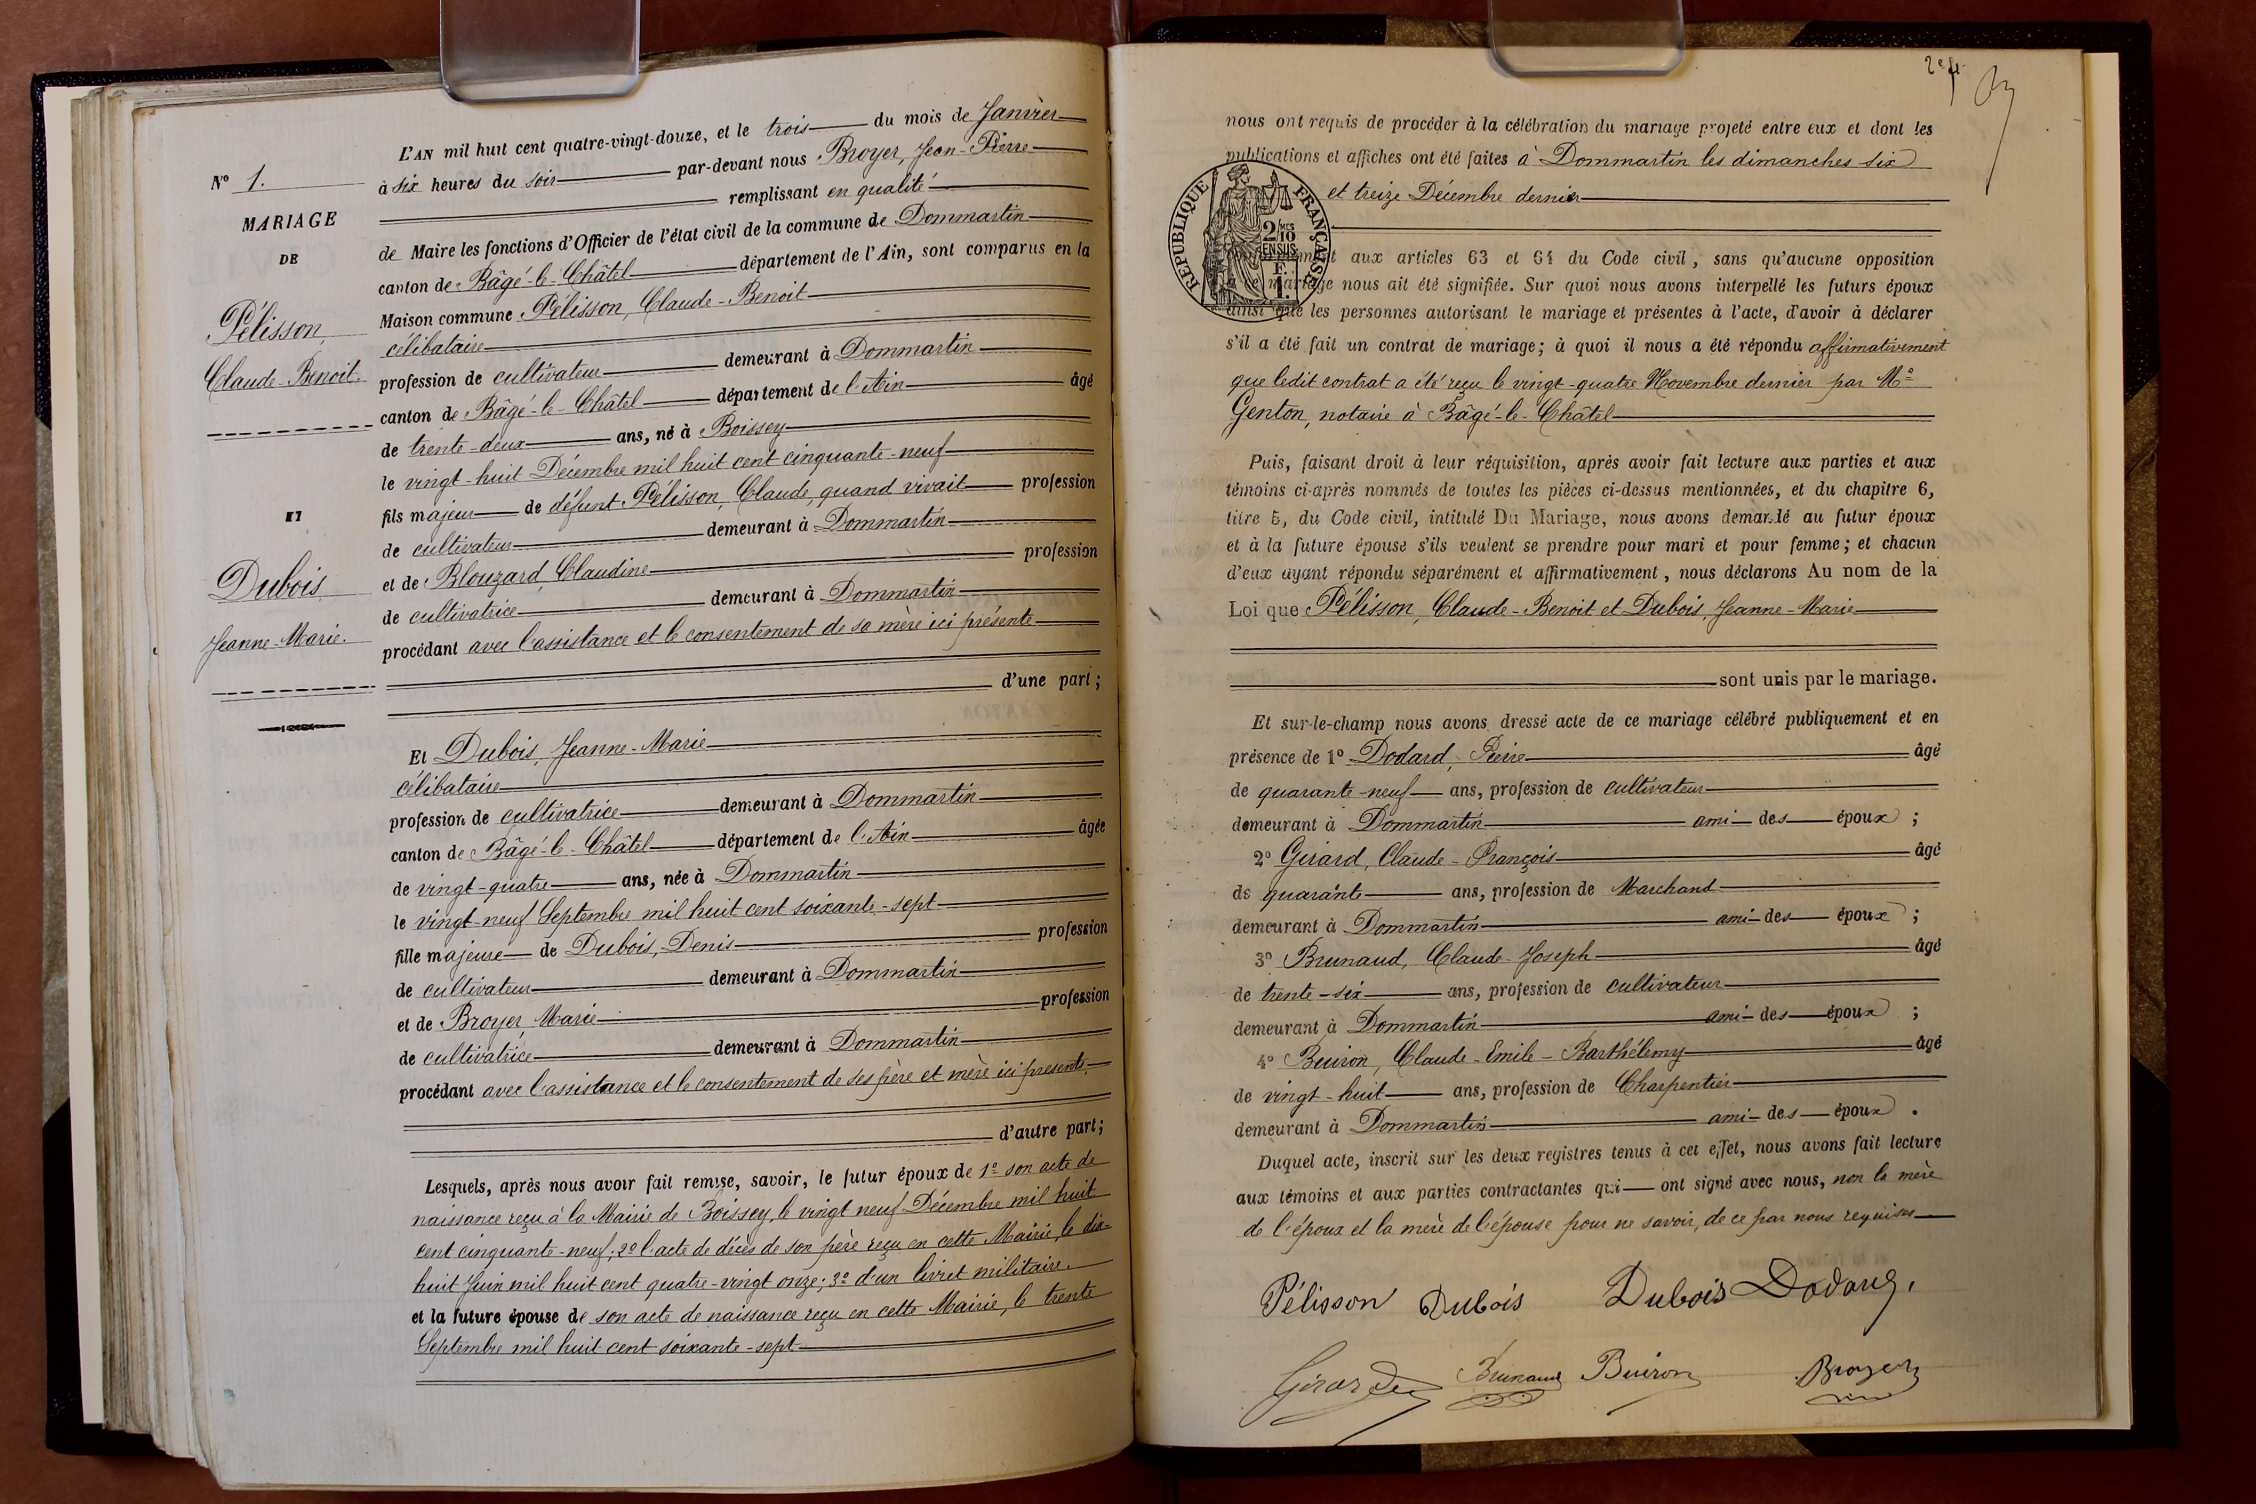 N° 1.
MARIAGE
DE
Pélisson,
Claude-Benoit.
ET
Dubois
Jeanne-Marie.
L'AN mil huit cent quatre-vingt-douze, et le trois du mois de Janvier
à six heures du soir par-devant nous Broyer, Jean-Pierre
remplissant en qualité
de Maire les fonctions d'Officier de l'état civil de la commune de Dommartin
canton de Bâgé-le-Châtel département de l'Ain, sont comparus en la
Maison commune Pélisson, Claude-Benoit
célibataire
profession de cultivateur demeurant à Dommartin
canton de Bâgé-le-Châtel département de l'Ain âgé
de trente-deux ans, né à Boissey
le vingt-huit Décembre mil huit cent cinquante-neuf
fils majeur de défunt Pélisson, Claude, quand vivait profession
de cultivateur demeurant à Dommartin
et de Blouzard Claudine profession
de cultivatrice demeurant à Dommartin
procédant avec l'assistance et le consentement de sa mère ici présente
d'une part;
Et Dubois, Jeanne-Marie
célibataire
profession de cultivatrice demeurant à Dommartin
canton de Bâgé-le-Châtel département de l'Ain âgée
de vingt-quatre ans, née à Dommartin
le vingt-neuf Septembre mil huit cent soixante-sept
fille majeure de Dubois, Denis profession
de cultivateur demeurant à Dommartin
et de Broyer Marie profession
de cultivatrice demeurant à Dommartin
procédant avec l'assistance et le consentement de ses père et mère ici présents
d'autre part;
Lesquels, après nous avoir fait remise, savoir, le futur époux de 1° son acte de
naissance reçu à la Mairie de Boissey, le vingt neuf Décembre mil huit
cent cinquante-neuf; 2° l'acte de décès de son père reçu en cette Mairie, le dix-
huit Juin mil huit cent quatre-vingt onze; 3° d'un livret militaire.
et la future épouse de son acte de naissance reçu en cette Mairie, le trente
Septembre mil huit cent soixante-sept
nous ont requis de procéder à la célébration du mariage projeté entre eux et dont les
publications et affiches ont été faites à Dommartin les dimanches six
et treize Décembre dernier
RÉPUBLIQUE FRANÇAISE
2/10 MES
EN SUS
aux articles 63 et 64 du Code civil, sans qu'aucune opposition
à ce mariage nous ait été signifiée. Sur quoi nous avons interpellé les futurs époux
ainsi que les personnes autorisant le mariage et présentes à l'acte, d'avoir à déclarer
s'il a été fait un contrat de mariage; à quoi il nous a été répondu affirmativement
que ledit contrat a été reçu le vingt-quatre Novembre dernier par Me
Genton, notaire à Bâgé-le-Châtel
Puis, faisant droit à leur réquisition, après avoir fait lecture aux parties et aux
témoins ci-après nommés de toutes les pièces ci-dessus mentionnées, et du chapitre 6,
titre 5, du Code civil, intitulé Du Mariage, nous avons demandé au futur époux
et à la future épouse s'ils veulent se prendre pour mari et pour femme; et chacun
d'eux ayant répondu séparément et affirmativement, nous déclarons Au nom de la
Loi que Pélisson, Claude-Benoit et Dubois, Jeanne-Marie
sont unis par le mariage.
Et sur-le-champ nous avons dressé acte de ce mariage célébré publiquement et en
présence de 1° Dodard, Pierre âgé
de quarante-neuf ans, profession de cultivateur
demeurant à Dommartin ami des époux;
2° Girard, Claude-François âgé
de quarante ans, profession de Marchand
demeurant à Dommartin ami des époux;
3° Brunaud, Claude-Joseph âgé
de trente-six ans, profession de cultivateur
demeurant à Dommartin ami des époux;
4° Buiron, Claude-Emile-Barthélemy âgé
de vingt-huit ans, profession de Charpentier
demeurant à Dommartin ami des époux.
Duquel acte, inscrit sur les deux registres tenus à cet effet, nous avons fait lecture
aux témoins et aux parties contractantes qui ont signé avec nous, non la mère
de l'époux et la mère de l'épouse pour ne savoir, de ce par nous requises
Pélisson Dubois Dubois Dodard.
Girard Brunaud Buiron Broyer